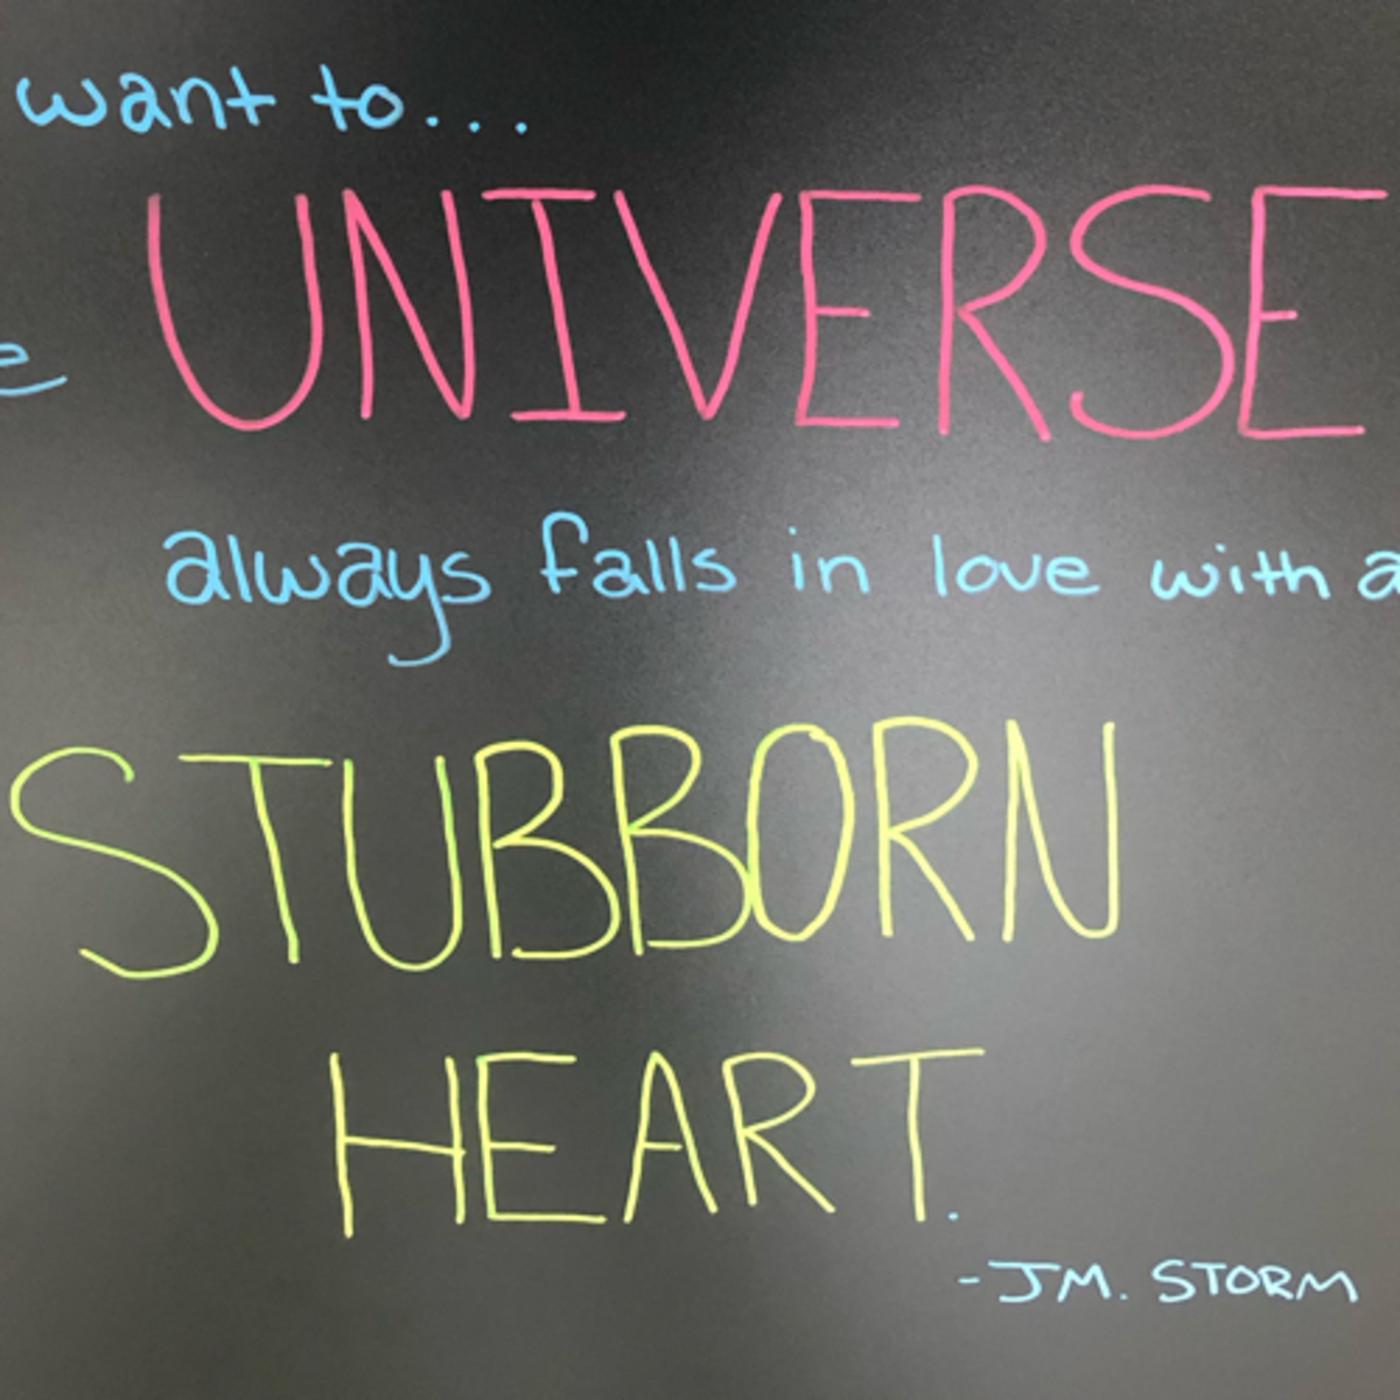 want to...
UNIVERSE
always falls in love with a
STUBBORN
HEART.
-JM. STORM